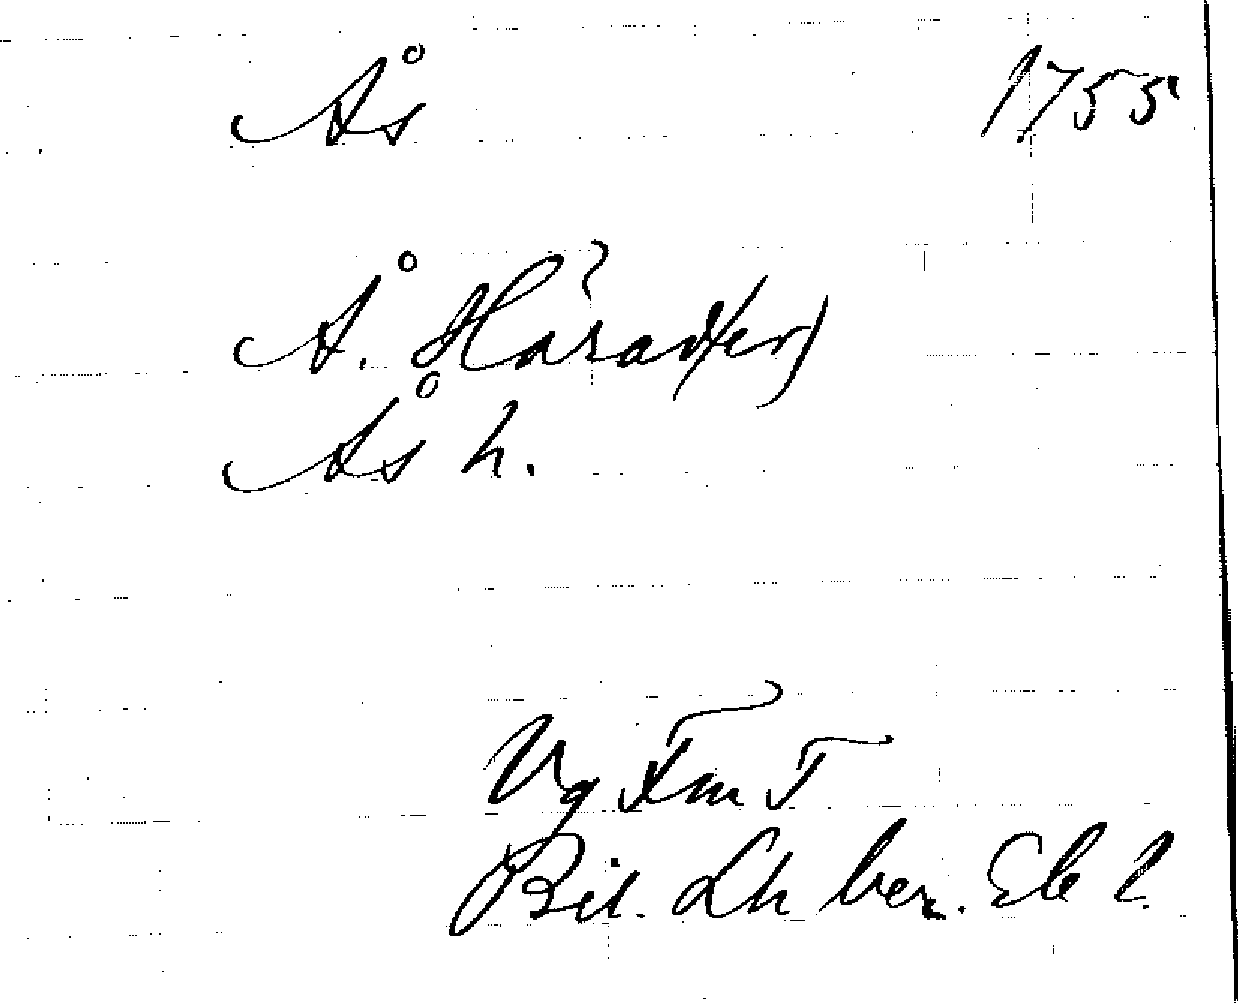 Ås 1755
Å. Härad(er)
Ås h.
Vg FmT
Bil. Lh ber.